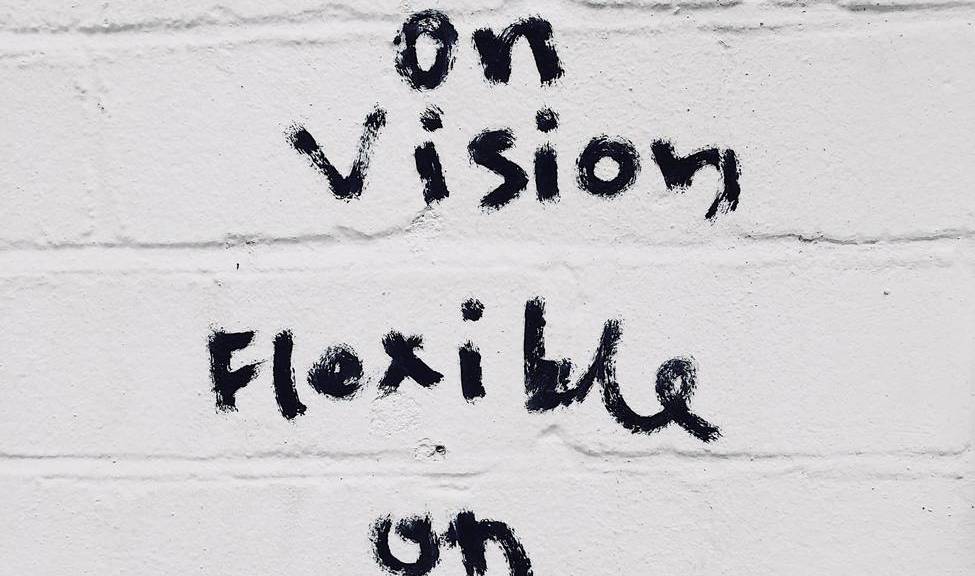 on
Vision
Flexible
on